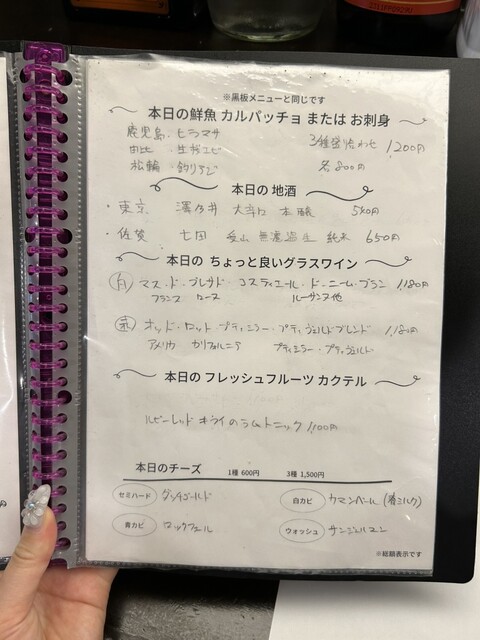 ※黒板メニューと同じです
本日の鮮魚 カルパッチョ または お刺身
鹿児島・ヒラマサ
由比・生桜エビ 3種盛合わせ 1,200円
松輪・釣りアジ 各800円
本日の 地酒
・東京 澤乃井 大辛口 本醸 540円
・佐賀 七田 無濾過生 純米 650円
本日の ちょっと良いグラスワイン
白 マス・ド・ブレサド・コスティエール・ド・ニーム・ブラン 1,180円
フランス ローヌ ルーサンヌ他
赤 オッド・ロット プティシラー・プティヴェルドブレンド 1,180円
アメリカ カリフォルニア プティシラー・プティヴェルド
本日の フレッシュフルーツ カクテル
ルビーレッド キウイのラムトニック 1,100円
本日のチーズ 1種 600円 3種 1,500円
セミハード ゴールド 白カビ カマンベール
青カビ ロックフォール ウォッシュ サンジェルマン
※総額表示です